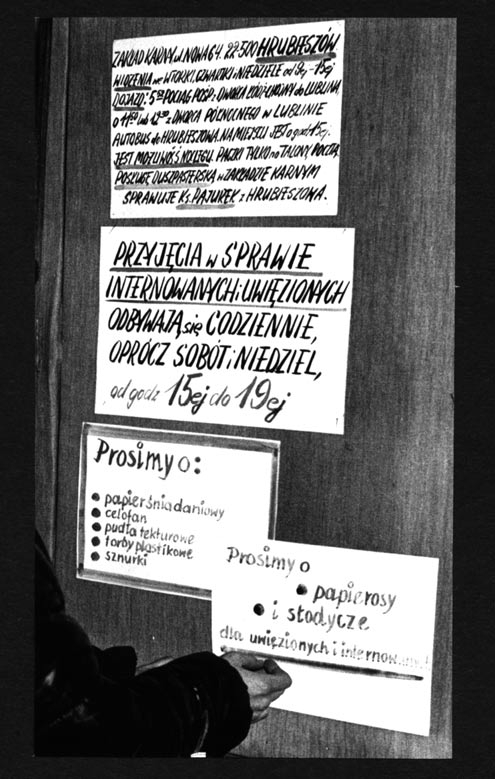 ZAKŁAD KARNY ul. NOWA 64. 22-500 HRUBIESZÓW.
WIDZENIA we WTORKI, CZWARTKI i NIEDZIELE od 9ej-15ej
DOJAZD: 5 POCIĄG POSP. z DWORCA WSCHODNI do LUBLINA
o lub z DWORCA PÓŁNOCNEGO w LUBLINIE
AUTOBUS do HRUBIESZOWA. NA MIEJSCU JEST o godz 15ej.
JEST MOŻLIWOŚĆ NOCLEGU. PACZKI TYLKO na TALONY, POCZTĄ.
POSŁUGĘ DUSZPASTERSKĄ w ZAKŁADZIE KARNYM
SPRAWUJE Ks. PAJUREK z HRUBIESZOWA.
PRZYJĘCIA w SPRAWIE
INTERNOWANYCH i UWIĘZIONYCH
ODBYWAJĄ się CODZIENNIE,
OPRÓCZ SOBÓT i NIEDZIEL,
od godz 15ej do 19ej
Prosimy o:
• papier śniadaniowy
• celofan
• pudła tekturowe
• torby plastikowe
• sznurki
Prosimy o
• papierosy
• i słodycze
dla uwięzionych i internowanych